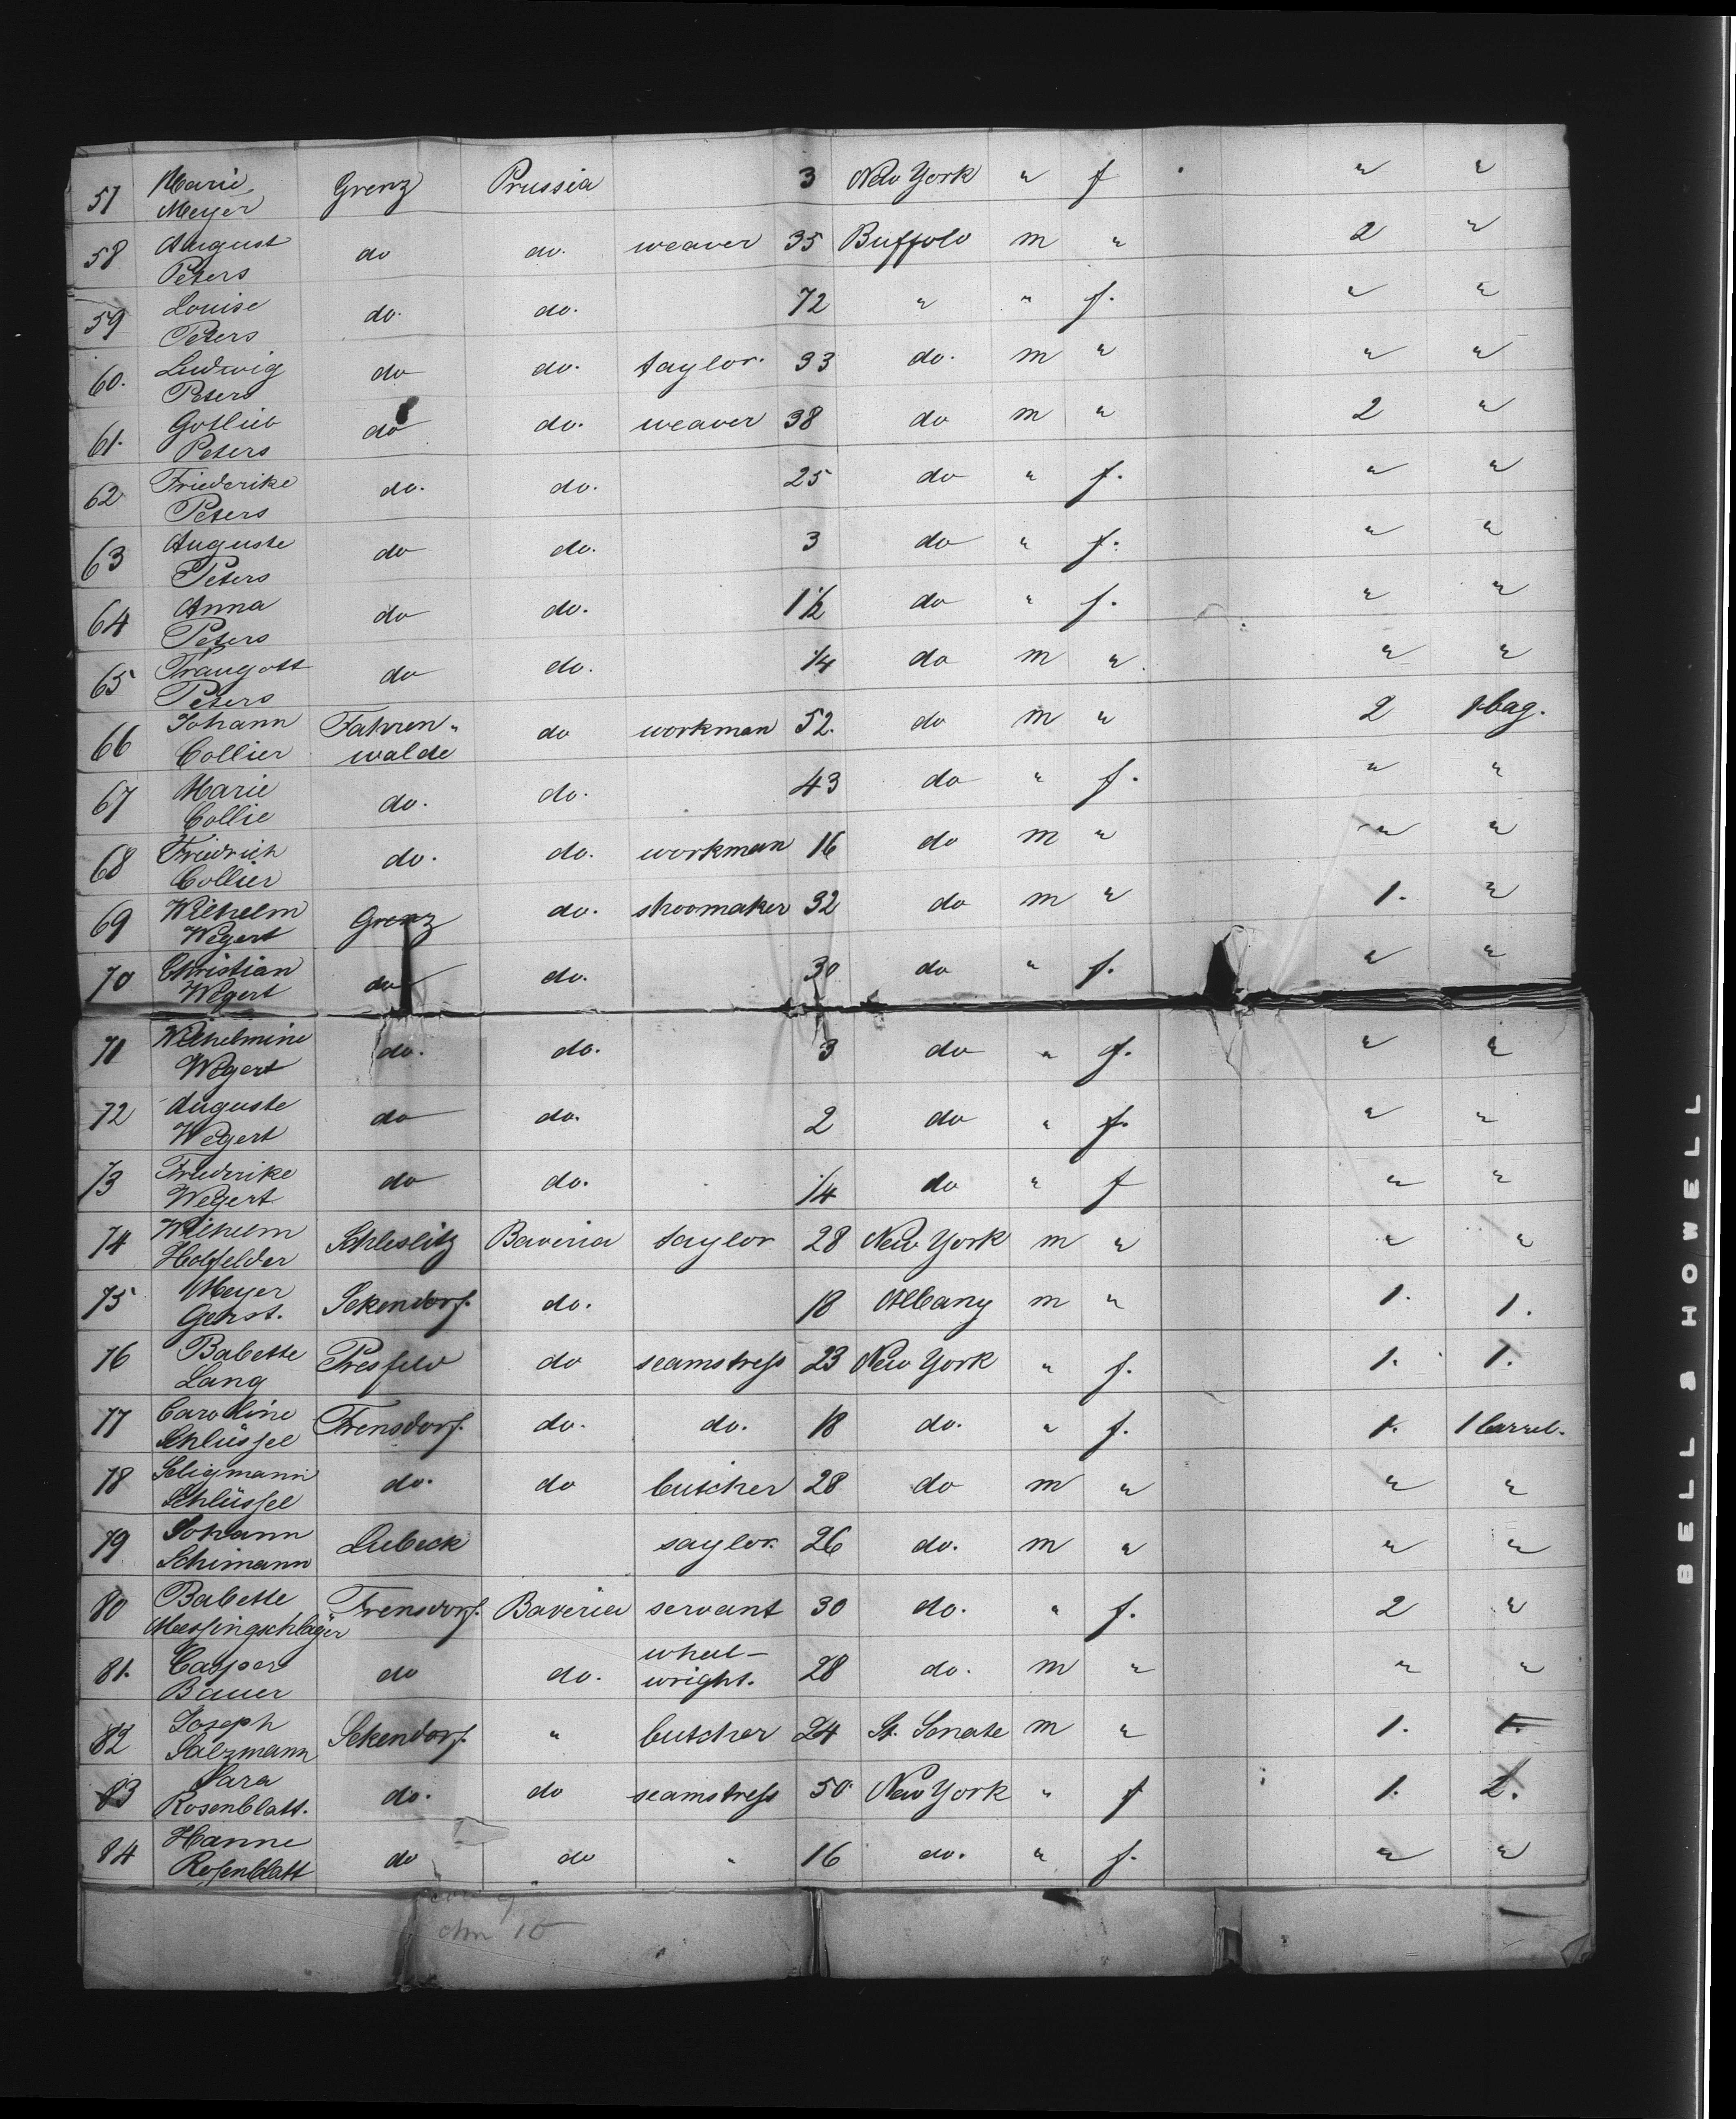 57 Marie Grenz Prussia 3 New York " f " "
Meyer
58 August do do. weaver 35 Buffolo m " 2 "
Peters
59 Louise do. do. 72 " " f. " "
Peters
60. Ludwig do do. taylor. 33 do. m " " "
Peters
61. Gotlieb do do. weaver 38 do m " 2 "
Peters
62 Friederike do. do. 25 do " f. " "
Peters
63 Auguste do do. 3 do " f. " "
Peters
64 Anna do do. 1 1/2 do " f. " "
Peters
65 Traugott do do. 1/4 do m " " "
Peters
66 Johann Fahren- do workman 52. do m " 2 1 bag.
Collier walde
67 Marie do. do. 43 do " f. " "
Collie
68 Friedrich do. do. workman 16 do m " " "
Collier
69 Wilhelm Grenz do. shoomaker 32 do m " 1. "
Wegert
70 Christian do do. 30 do " f. " "
Wegert
71 Wilhelmine do. do. 3 do " f. " "
Wegert
72 Auguste do do. 2 do " f. " "
Wegert
73 Friederike do do. 1/4 do " f " "
Wegert
74 Wilhelm Schleslitz Baveria taylor 28 New York m " " "
Holfelder
75 Meyer Sekendorf. do. 18 Albany m " 1. 1.
Gerst.
76 Babette Presfeld do seamstress 23 New York " f. 1. 1.
Lang
77 Caroline Frensdorf. do. do. 18 do. " f. 1. 1 barrel.
Schlüssel
78 Seligmann do. do butcher 28 do m " " "
Schlüssel
79 Johann Lubeck saylor. 26 do. m " " "
Schimann
80 Babette Frensdorf. Baveria servant 30 do. " f. 2 "
Messingschläger
81. Casper do do. wheel- 28 do. m " " "
Bauer wright.
82 Joseph Sekendorf. " butcher 24 St. Senate m " 1. 1.
Salzmann
83 Sara do. do seamstress 50 New York " f 1. 2.
Rosenblatt.
84 Hanne do do " 16 do. " f. " "
Rosenblatt
BELL & HOWELL